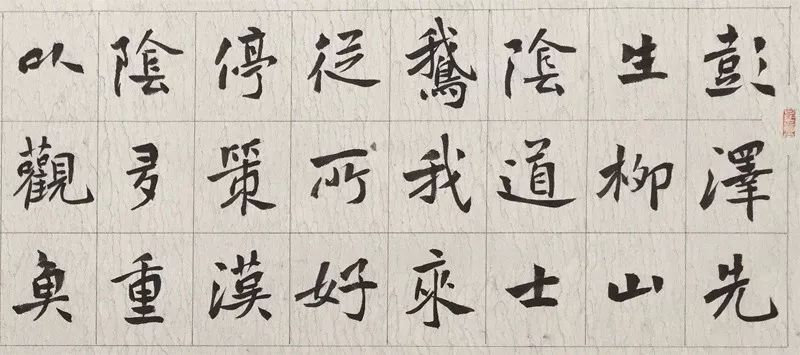 彭澤先
生柳山
陰道士
鵝我來
從所好
停策漢
陰多重
以觀魚